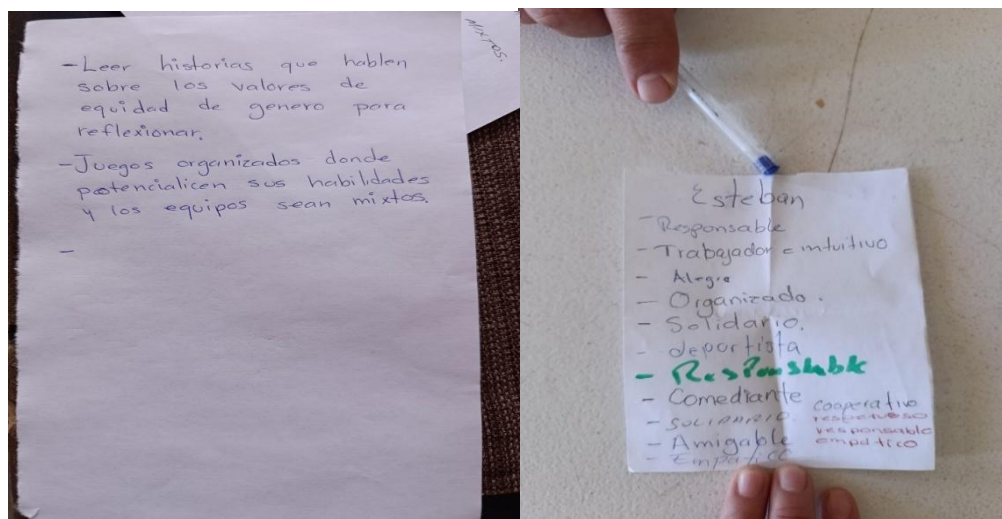 - Leer historias que hablen
sobre los valores de
equidad de genero para
reflexionar.
- Juegos organizados donde
potencialicen sus habilidades
y los equipos sean mixtos.
-
MIXTOS.
Esteban
- Responsable
- Trabajador e intuitivo
- Alegre
- Organizado.
- Solidario.
- deportista
- Responsable
- Comediante
- SOLIDARIO.
- Amigable
- Empatico
cooperativo
respetuoso
responsable
empatico